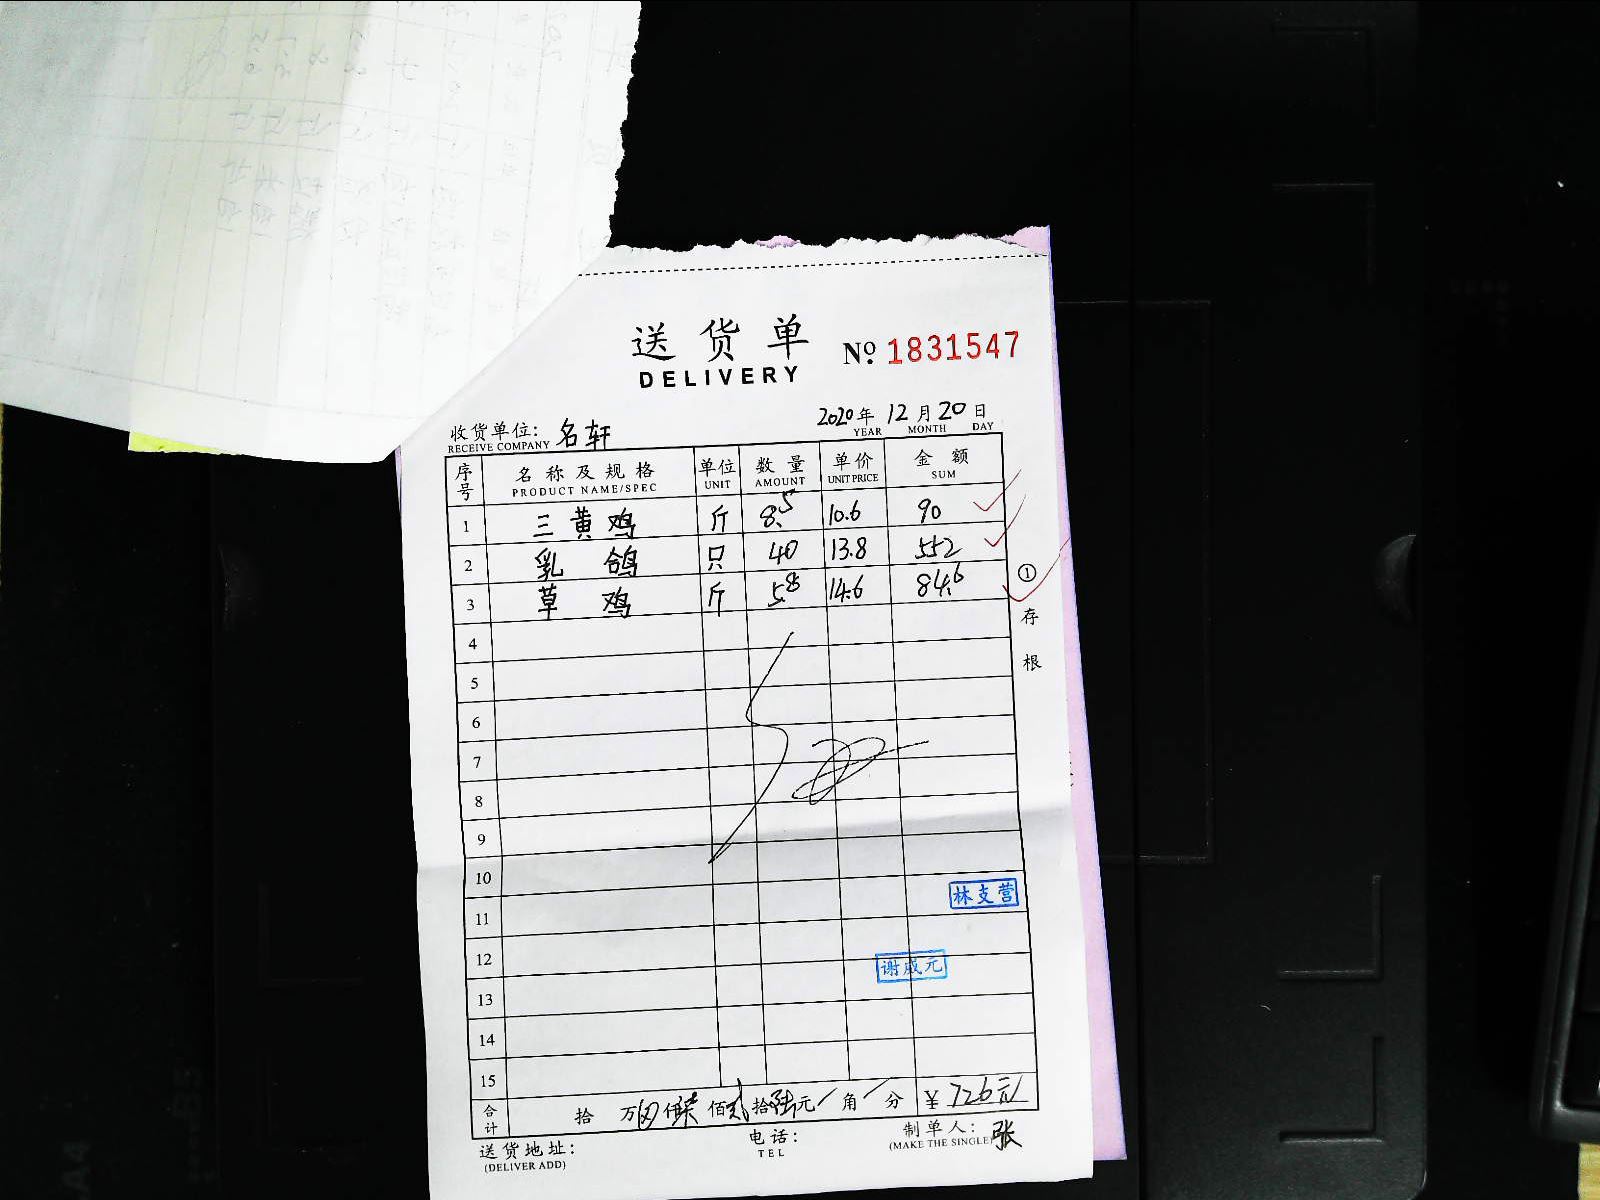 送货单
DELIVERY
№ 1831547
2020年 12月20日
YEAR MONTH DAY
收货单位: 名轩
RECEIVE COMPANY
序号 名称及规格 单位 数量 单价 金额
PRODUCT NAME/SPEC UNIT AMOUNT UNIT PRICE SUM
1 三黄鸡 斤 8.5 10.6 90
2 乳鸽 只 40 13.8 552
3 草鸡 斤 5.8 14.6 84.6
4
5
6
7
8
9
10
11
12
13
14
15
① 存根
林支营
谢成元
合计 拾 万 仟柒佰贰拾陆元/角/分 ¥726元
送货地址: 电话: 制单人: 张
(DELIVER ADD) TEL (MAKE THE SINGLE)